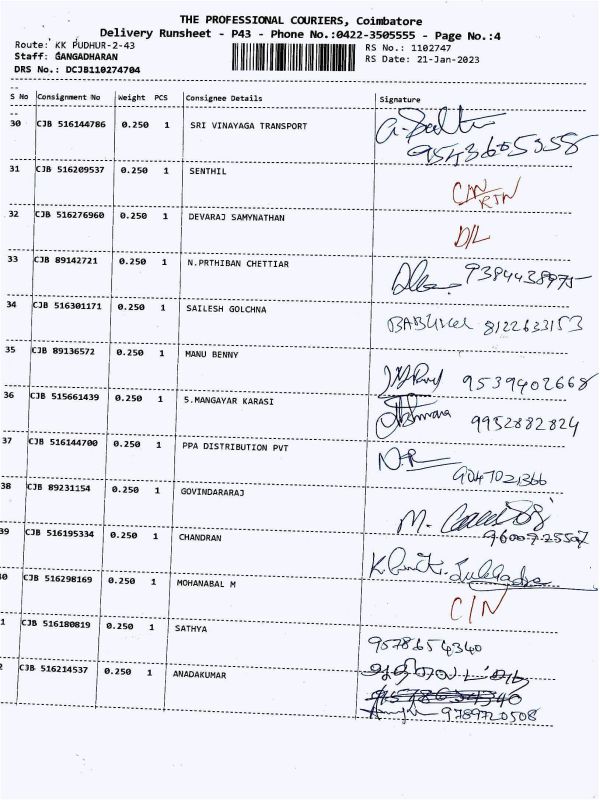 THE PROFESSIONAL COURIERS, Coimbatore
Delivery Runsheet - P43 - Phone No.:0422-3505555 - Page No.:4
Route: KK PUDHUR-2-43 RS No.: 1102747
Staff: GANGADHARAN RS Date: 21-Jan-2023
DRS No.: DCJB110274704
S No Consignment No Weight PCS Consignee Details Signature
30 CJB 516144786 0.250 1 SRI VINAYAGA TRANSPORT
9543605358
31 CJB 516209537 0.250 1 SENTHIL C/N
RTN
32 CJB 516276960 0.250 1 DEVARAJ SAMYNATHAN D/L
33 CJB 89142721 0.250 1 N.PRTHIBAN CHETTIAR 9384438975
34 CJB 516301171 0.250 1 SAILESH GOLCHNA 8122633153
35 CJB 89136572 0.250 1 MANU BENNY 9539402668
36 CJB 515661439 0.250 1 S.MANGAYAR KARASI 9952882824
37 CJB 516144700 0.250 1 PPA DISTRIBUTION PVT N.R
9047021366
38 CJB 89231154 0.250 1 GOVINDARARAJ M.
39 CJB 516195334 0.250 1 CHANDRAN
0 CJB 516298169 0.250 1 MOHANABAL M C/N
1 CJB 516180819 0.250 1 SATHYA 9578654340
2 CJB 516214537 0.250 1 ANADAKUMAR
9789720508